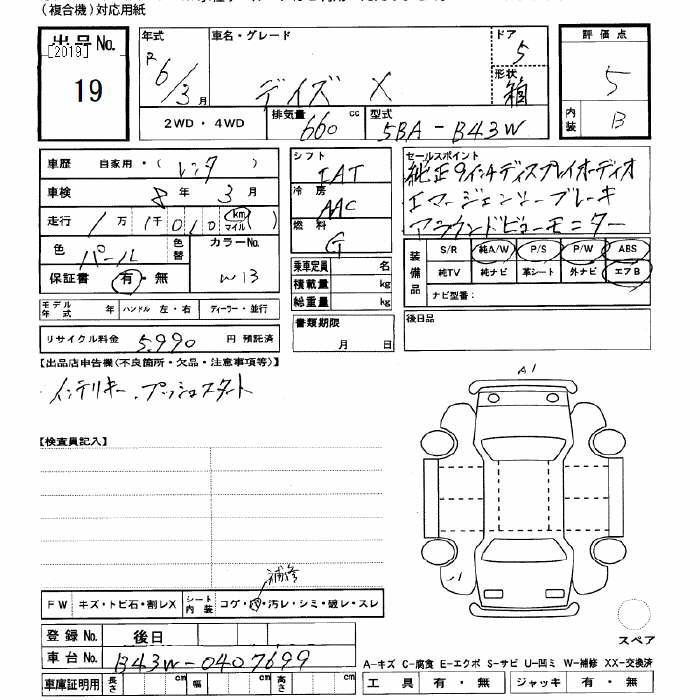 (複合機)対応用紙
出品No.
[2019]
19
年式
R6/3月
車名・グレード
デイズ X
ドア
5
形状
箱
評価点
5
内装
B
2WD・4WD
排気量
660
cc
型式
5BA-B43W
車歴 自家用・(レンタ)
車検 8年3月
走行 1万1千010 km マイル
色 パール
色替
カラーNo.
W13
保証書 有・無
モデル年式 年 ハンドル 左・右 ディーラー・並行
リサイクル料金 5,990円 預託済
シフト
IAT
冷房
AAC
燃料
G
乗車定員 名
積載量 kg
総重量 kg
書類期限
月 日
セールスポイント
純正9インチディスプレイオーディオ
エマージェンシーブレーキ
アラウンドビューモニター
装備品
S/R 純A/W P/S P/W ABS
純TV 純ナビ 革シート 外ナビ エアB
ナビ型番:
後日品
【出品店申告欄(不良箇所・欠品・注意事項等)】
インテリキー、プッシュスタート
【検査員記入】
A1
補修
FW キズ・トビ石・割レX
シート内装 コゲ・穴・汚レ・シミ・破レ・スレ
スペア
登録No. 後日
車台No. B43W-0407699
A-キズ C-腐食 E-エクボ S-サビ U-凹ミ W-補修 XX-交換済
車庫証明用 長さ cm 幅 cm 高さ cm
工具 有・無 ジャッキ 有・無